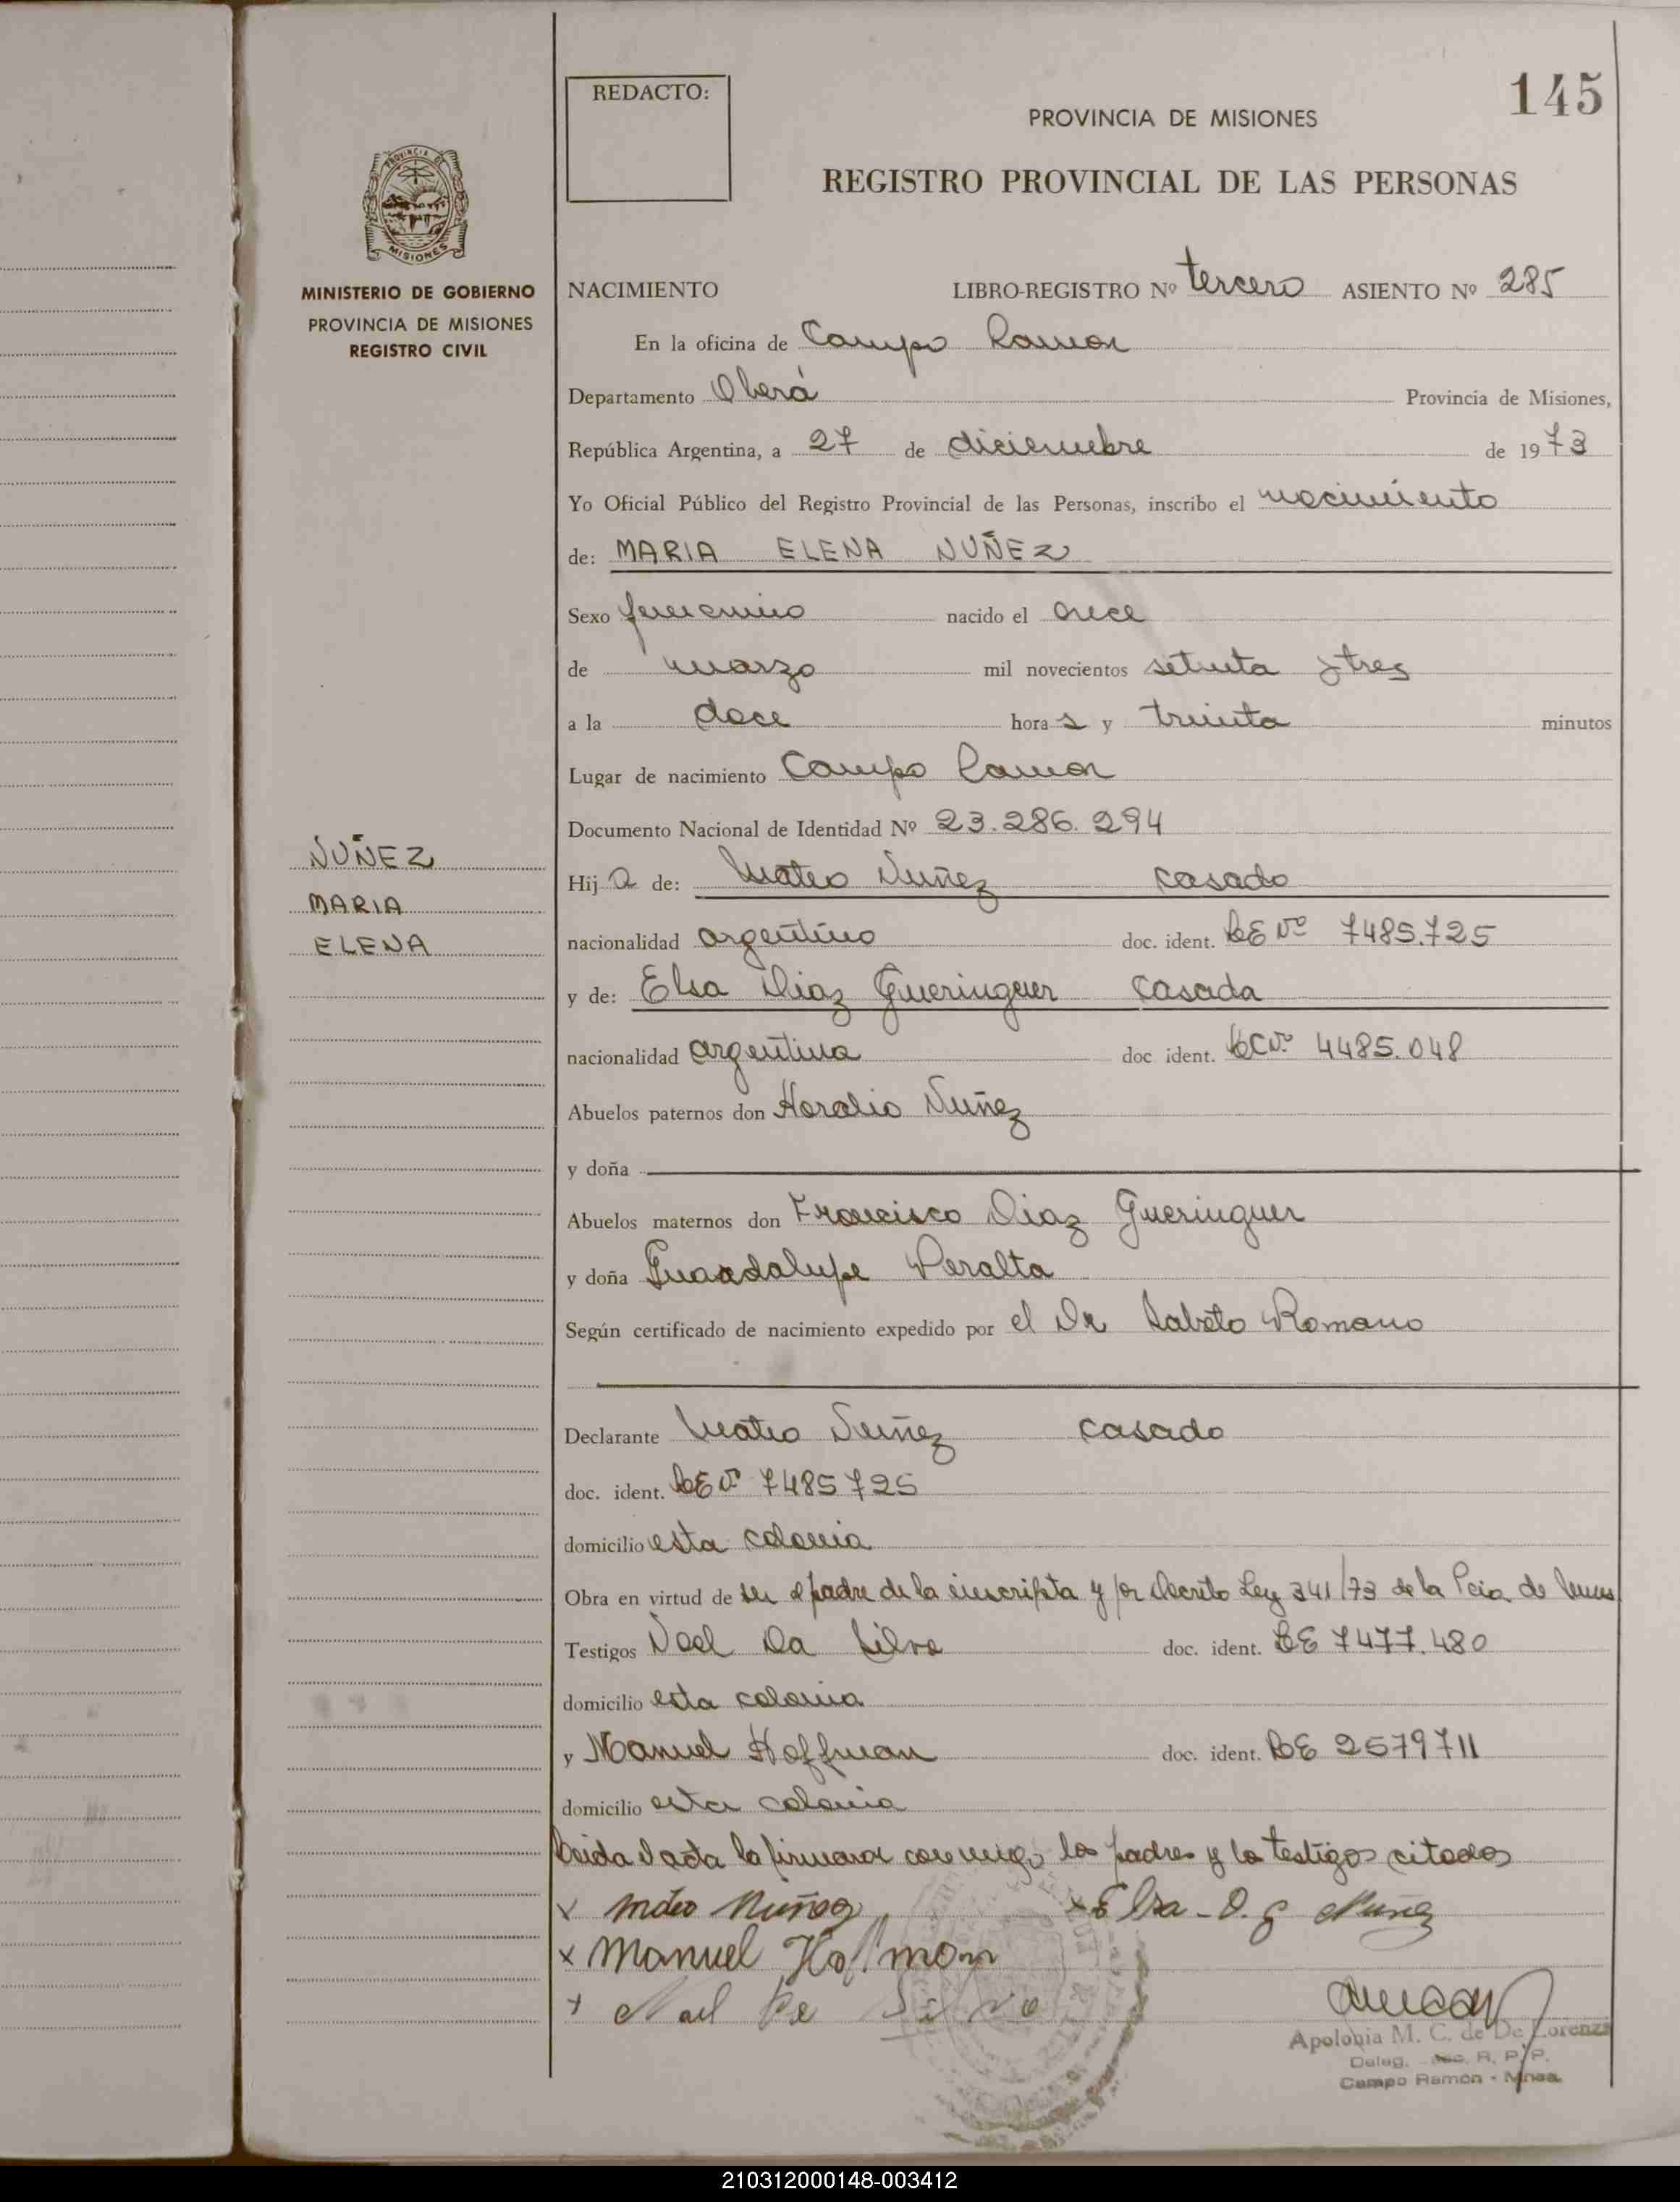 145
REDACTO:
PROVINCIA DE MISIONES
REGISTRO PROVINCIAL DE LAS PERSONAS
PROVINCIA DE
MISIONES
MINISTERIO DE GOBIERNO
PROVINCIA DE MISIONES
REGISTRO CIVIL
NACIMIENTO LIBRO-REGISTRO Nº tercero ASIENTO Nº 285
En la oficina de Campo Ramon
Departamento Oberá Provincia de Misiones,
República Argentina, a 27 de diciembre de 1973
Yo Oficial Público del Registro Provincial de las Personas, inscribo el nacimiento
de: MARIA ELENA NUÑEZ
Sexo femenino nacido el once
de marzo mil novecientos setenta y tres
a la doce hora s y treinta minutos
Lugar de nacimiento Campo Ramon
Documento Nacional de Identidad Nº 23.286.294
NUÑEZ
MARIA
ELENA
Hij a de: Mateo Nuñez casado
nacionalidad argentino doc. ident. LE Nº 7485.725
y de: Elsa Diaz Gueringuer casada
nacionalidad argentina doc ident. LC Nº 4485.048
Abuelos paternos don Horalio Nuñez
y doña
Abuelos maternos don Francisco Diaz Gueringuer
y doña Guaadalupe Peralta
Según certificado de nacimiento expedido por el Dr Sabeto Romano
Declarante Mateo Nuñez casado
doc. ident. LE Nº 7485725
domicilio esta colonia
Obra en virtud de ser el padre de la inscripta y por Decreto Ley 341/73 de la Pcia de Mnes
Testigos Noel Da Silva doc. ident. LE 7477.480
domicilio esta colonia
y Manuel Hoffman doc. ident. LE 2579711
domicilio esta colonia
Leida el acta la firman conmigo los padres y los testigos citados
x Mateo Nuñez x Elsa - D. G Nuñez
x Manuel Hofmon
x Noel Da Silva
Apolonia M. C. de De Lorenzi
Deleg. R. P. P.
Campo Ramón - Mnes.
210312000148-003412